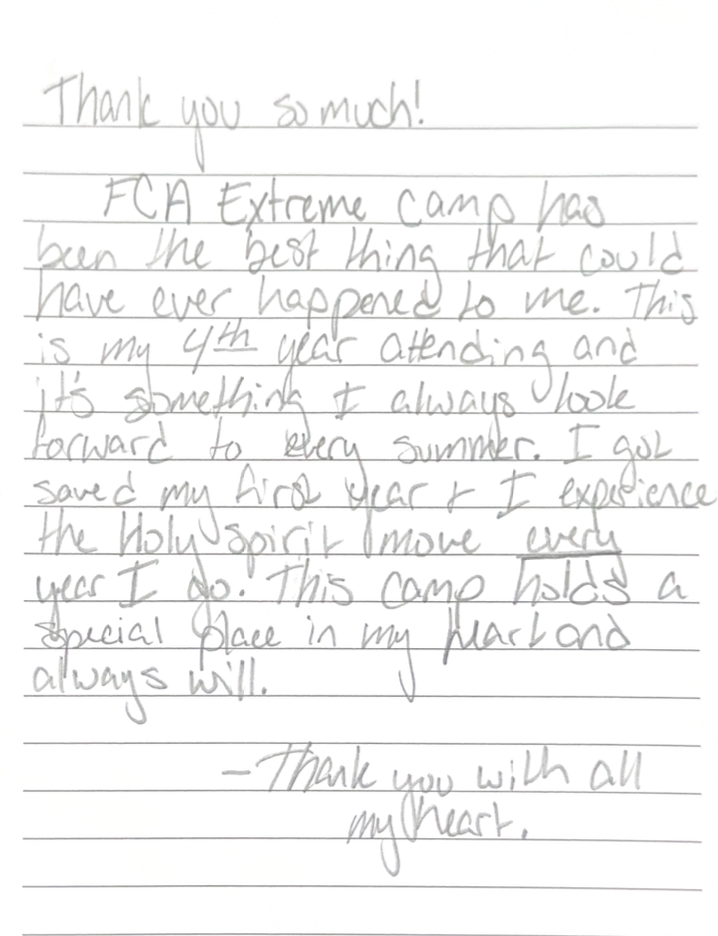 Thank you so much!
FCA Extreme Camp has
been the best thing that could
have ever happened to me. This
is my 4th year attending and
it's something I always look
forward to every summer. I got
saved my first year + I experience
the Holy Spirit move every
year I go. This camp holds a
special place in my heart and
always will.
- Thank you with all
my heart.